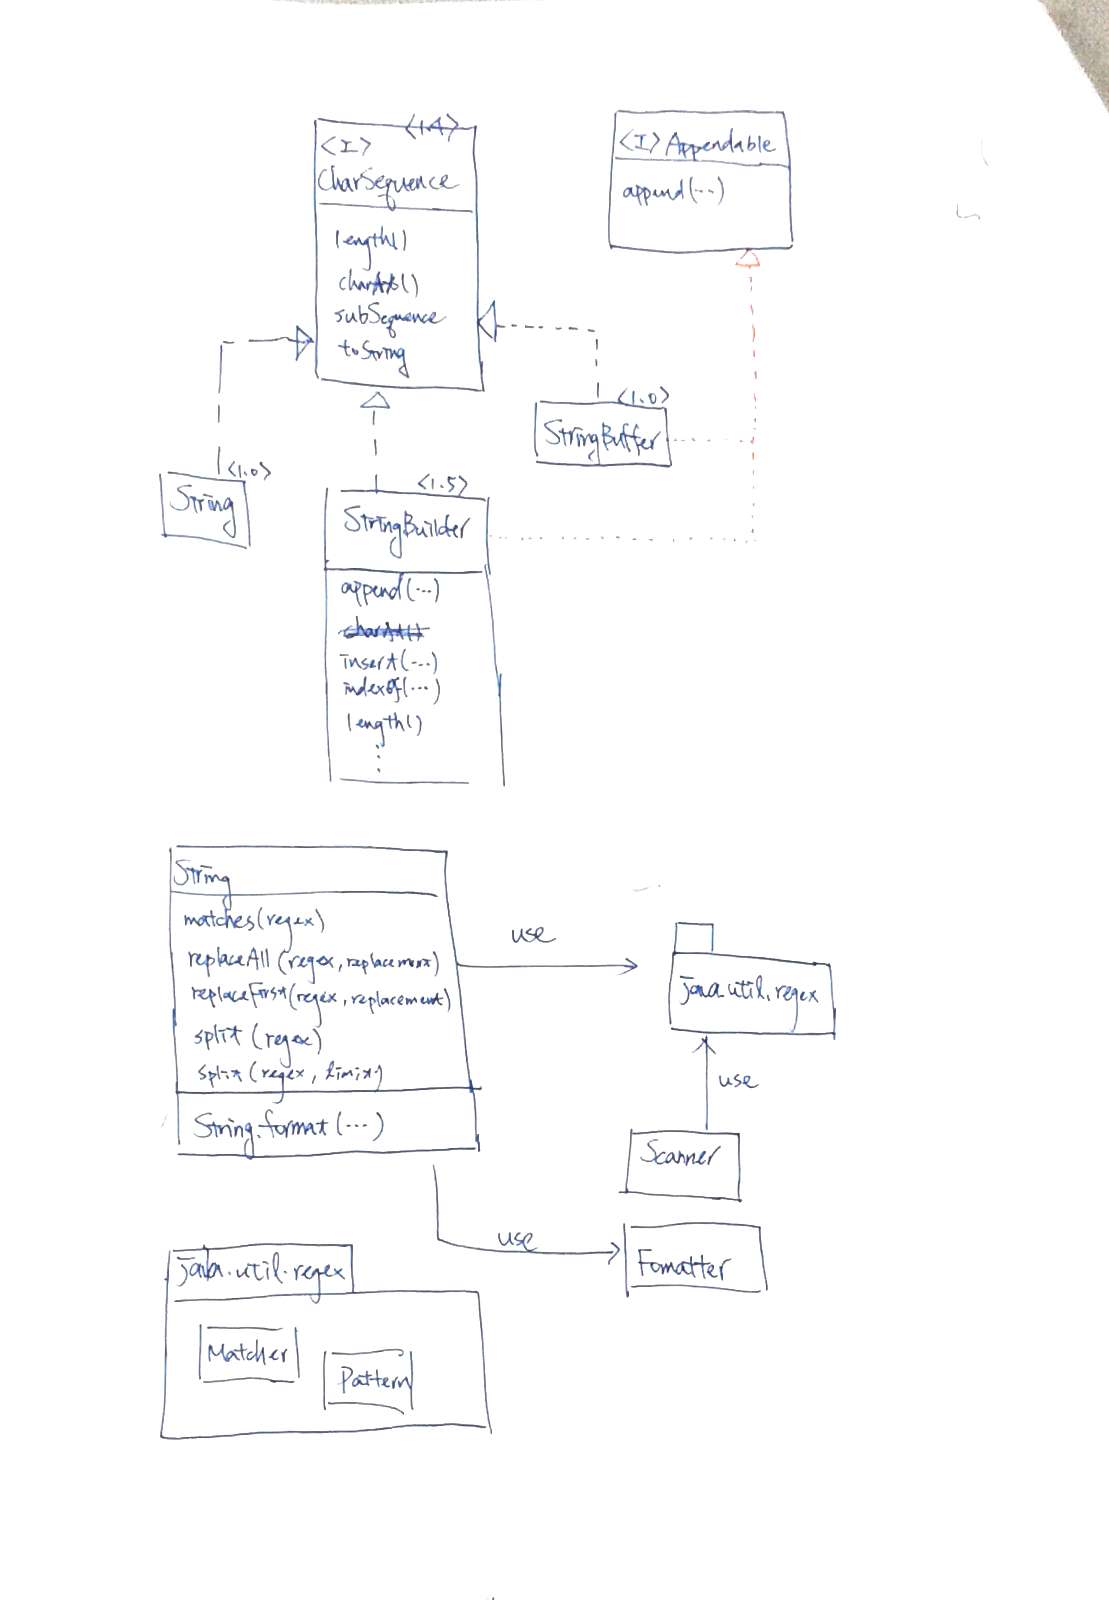 <1.4>
<I>
CharSequence
length()
charAt()
subSequence
toString
<I> Appendable
append(...)
<1.0>
StringBuffer
<1.0>
String
<1.5>
StringBuilder
append(...)
charAt()
insert(...)
indexOf(...)
length()
⋮
String
matches(regex)
replaceAll(regex, replacement)
replaceFirst(regex, replacement)
split(regex)
split(regex, limit)
String.format(...)
use
java.util.regex
use
Scanner
use
Fomatter
java.util.regex
Matcher
Pattern